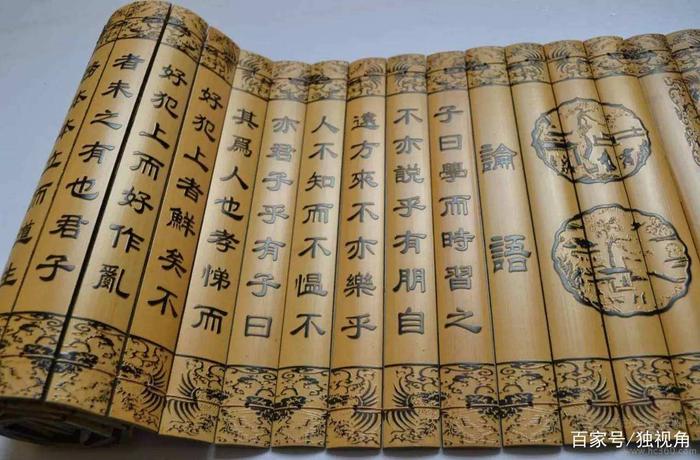 論語
子曰學而時習之
不亦說乎有朋自
遠方來不亦樂乎
人不知而不愠不
亦君子乎有子曰
其爲人也孝悌而
好犯上者鮮矣不
好犯上而好作亂
者未之有也君子
務本本立而道生
百家号/独视角
www.hc360.com